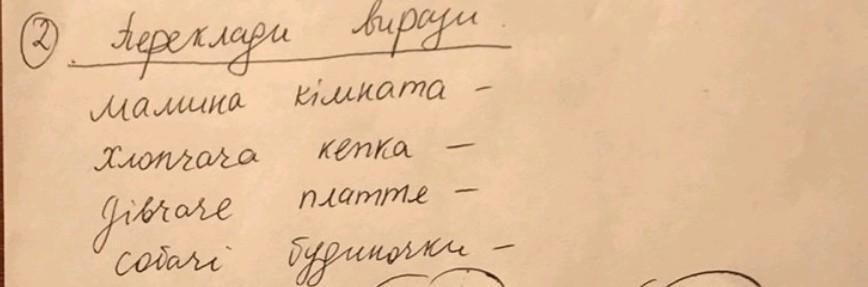 ② Переклади вирази.
мамина кімната –
хлопчача кепка –
дівчаче платте –
собачі будиночки –